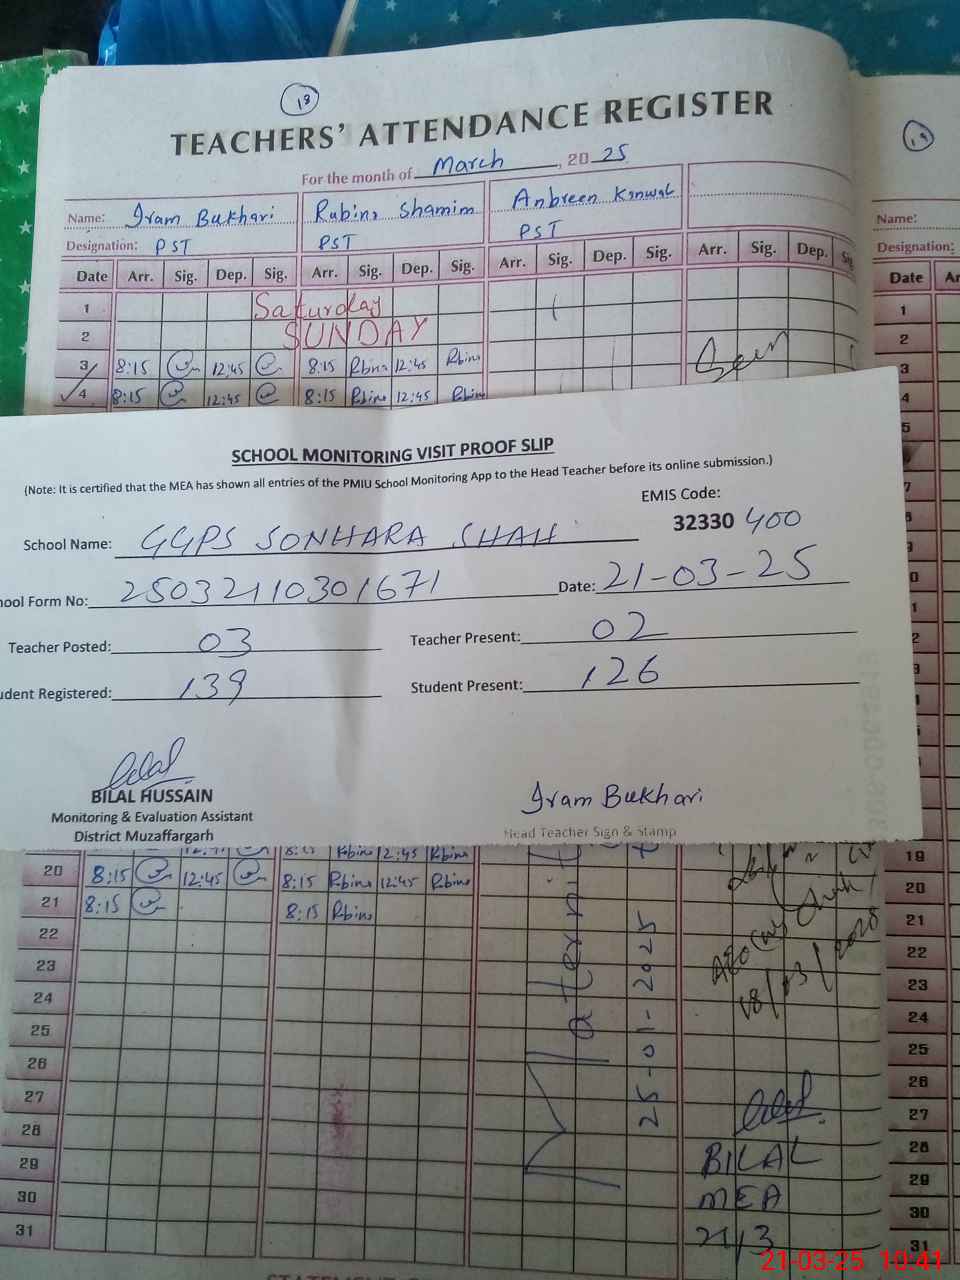 18
TEACHERS' ATTENDANCE REGISTER
For the month of March, 2025
19
Name: Iram Bukhari Rubina Shamim Anbreen Kanwal
Designation: PST PST PST
Date Arr. Sig. Dep. Sig. Arr. Sig. Dep. Sig. Arr. Sig. Dep. Sig. Arr. Sig. Dep.
Name:
Designation:
Date
1 Saturday
2 SUNDAY
3 8:15 12:45 8:15 Rbina 12:45 Rbina Seen
4 8:15 12:45 8:15 Rbina 12:45 Rbina
1
2
3
4
5
SCHOOL MONITORING VISIT PROOF SLIP
(Note: It is certified that the MEA has shown all entries of the PMIU School Monitoring App to the Head Teacher before its online submission.)
EMIS Code:
32330 400
School Name: GGPS SONHARA SHAH
hool Form No: 25032110301671 Date: 21-03-25
Teacher Posted: 03 Teacher Present: 02
udent Registered: 139 Student Present: 126
BILAL HUSSAIN
Monitoring & Evaluation Assistant
District Muzaffargarh
Iram Bukhari
Head Teacher Sign & Stamp
8:15 Rbina 12:45 Rbina
20 8:15 12:45 8:15 Rbina 12:45 Rbina
21 8:15 8:15 Rbina
22
23
24
25
26
27
28
29
30
31
25-01-2025
18/03/2025
Bilal
BILAL
MEA
21/3
19
20
21
22
23
24
25
26
27
28
29
30
31
21-03-25 10:41